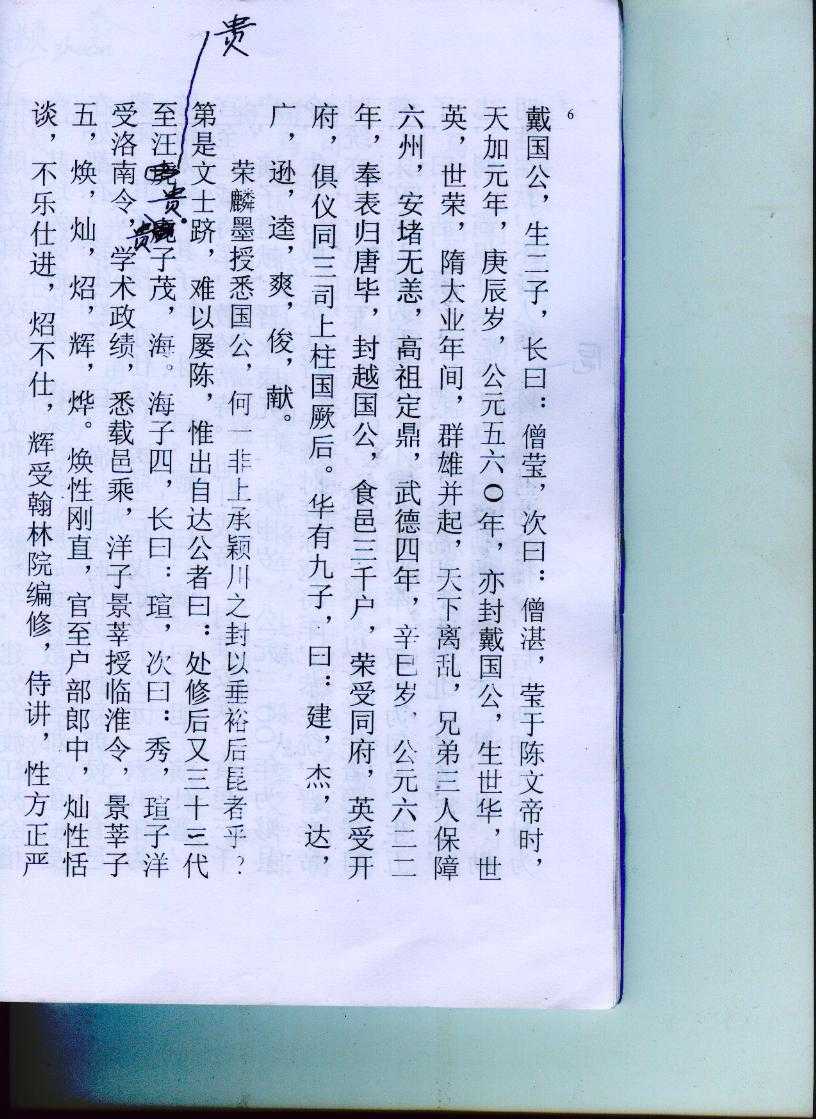 6
戴国公，生二子，长曰：僧莹，次曰：僧湛，莹于陈文帝时，
天加元年，庚辰岁，公元五六〇年，亦封戴国公，生世华，世
英，世荣，隋大业年间，群雄并起，天下离乱，兄弟三人保障
六州，安堵无恙，高祖定鼎，武德四年，辛巳岁，公元六二二
年，奉表归唐毕，封越国公，食邑三千户，荣受同府，英受开
府，俱仪同三司上柱国厥后。华有九子，曰：建，杰，达，
广，逊，逵，爽，俊，献。
荣麟墨授悉国公，何一非上承颖川之封以垂裕后昆者乎？
第是文士跻，难以屡陈，惟出自达公者曰：处修后又三十三代
至汪子茂，海。海子四，长曰：瑄，次曰：秀，瑄子洋
受洛南令，学术政绩，悉载邑乘，洋子景莘授临淮令，景莘子
五，焕，灿，炤，辉，烨。焕性刚直，官至户部郎中，灿性恬
谈，不乐仕进，炤不仕，辉受翰林院编修，侍讲，性方正严
贵
贵
贵